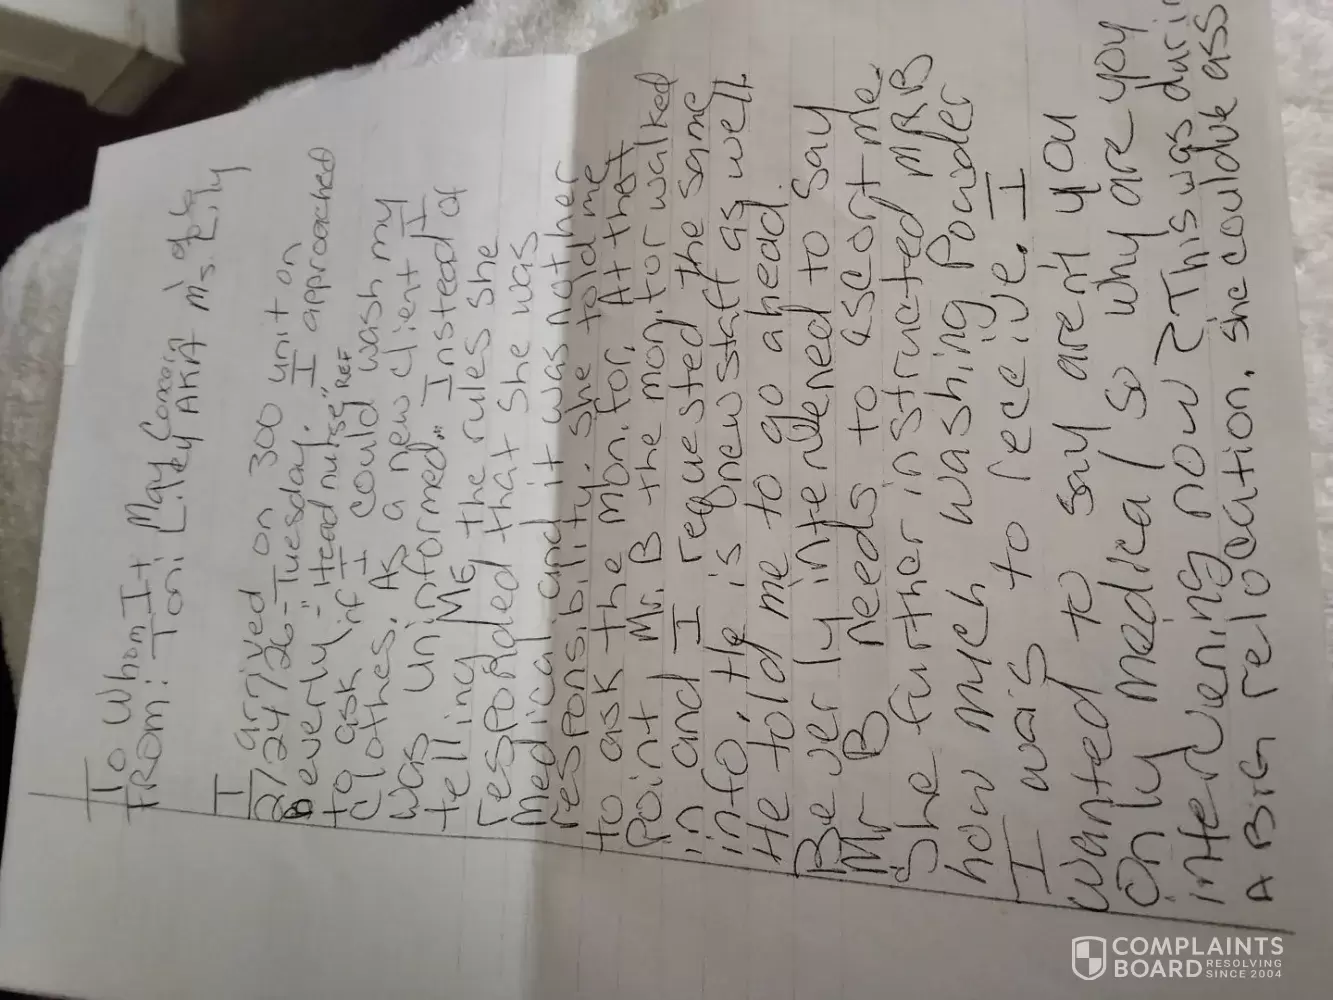 To Whom It May Concern
FROM: Toni Lilley AKA Ms. Lily
I arrived on 300 unit on
2/24/26-Tuesday. I approached
Beverly-"Head nurse" REF
to ask if I could wash my
clothes. As a new client I
was uninformed. Instead of
telling ME the rules she
responded that she was
Medical and it was not her
responsibility. She told me
to ask the monitor, At that
point Mr. B the monitor walked
in and I requested the same
info, He is new staff as well.
He told me to go ahead.
Beverly intervened to say
Mr B needs to escort me.
She further instructed MR B
how much washing Powder
I was to receive. I
wanted to say aren't you
only medical/so why are you
intervening now? This was durin
A BIG relocation. She couldve ass
COMPLAINTS
BOARD RESOLVING
SINCE 2004